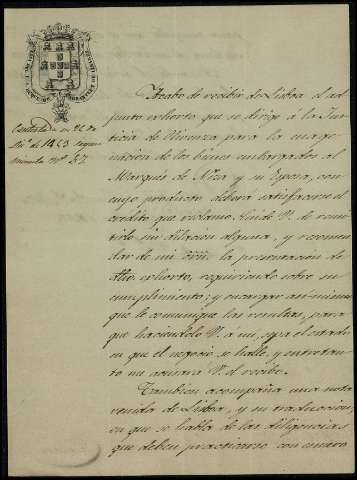 Contestada en 21 de
Acabo de recibir de Lisboa el ad-
junto exhorto que se dirige á la Jus-
ticia de Olivenza para la enage-
nacion de los bienes embargados al
Marqués de Niza y su Esposa, con
cuyo producto deberá satisfacerse el
credito que reclamo. Sirvase V. de remi-
tirlo sin dilacion alguna, y recomen-
dar de mi
dho. exhorto, requiriendo sobre su
cumplimiento; y encargar asi-mismo
que le comunique las resultas, para
que haciendolo V. á mi, sepa el estado
en que el negocio se halle, y entretan-
to me acusará V. el recibo.
Tambien acompaña una nota
venida de Lisboa, y su traduccion,
en que se habla de las diligencias
que deben practicarse con